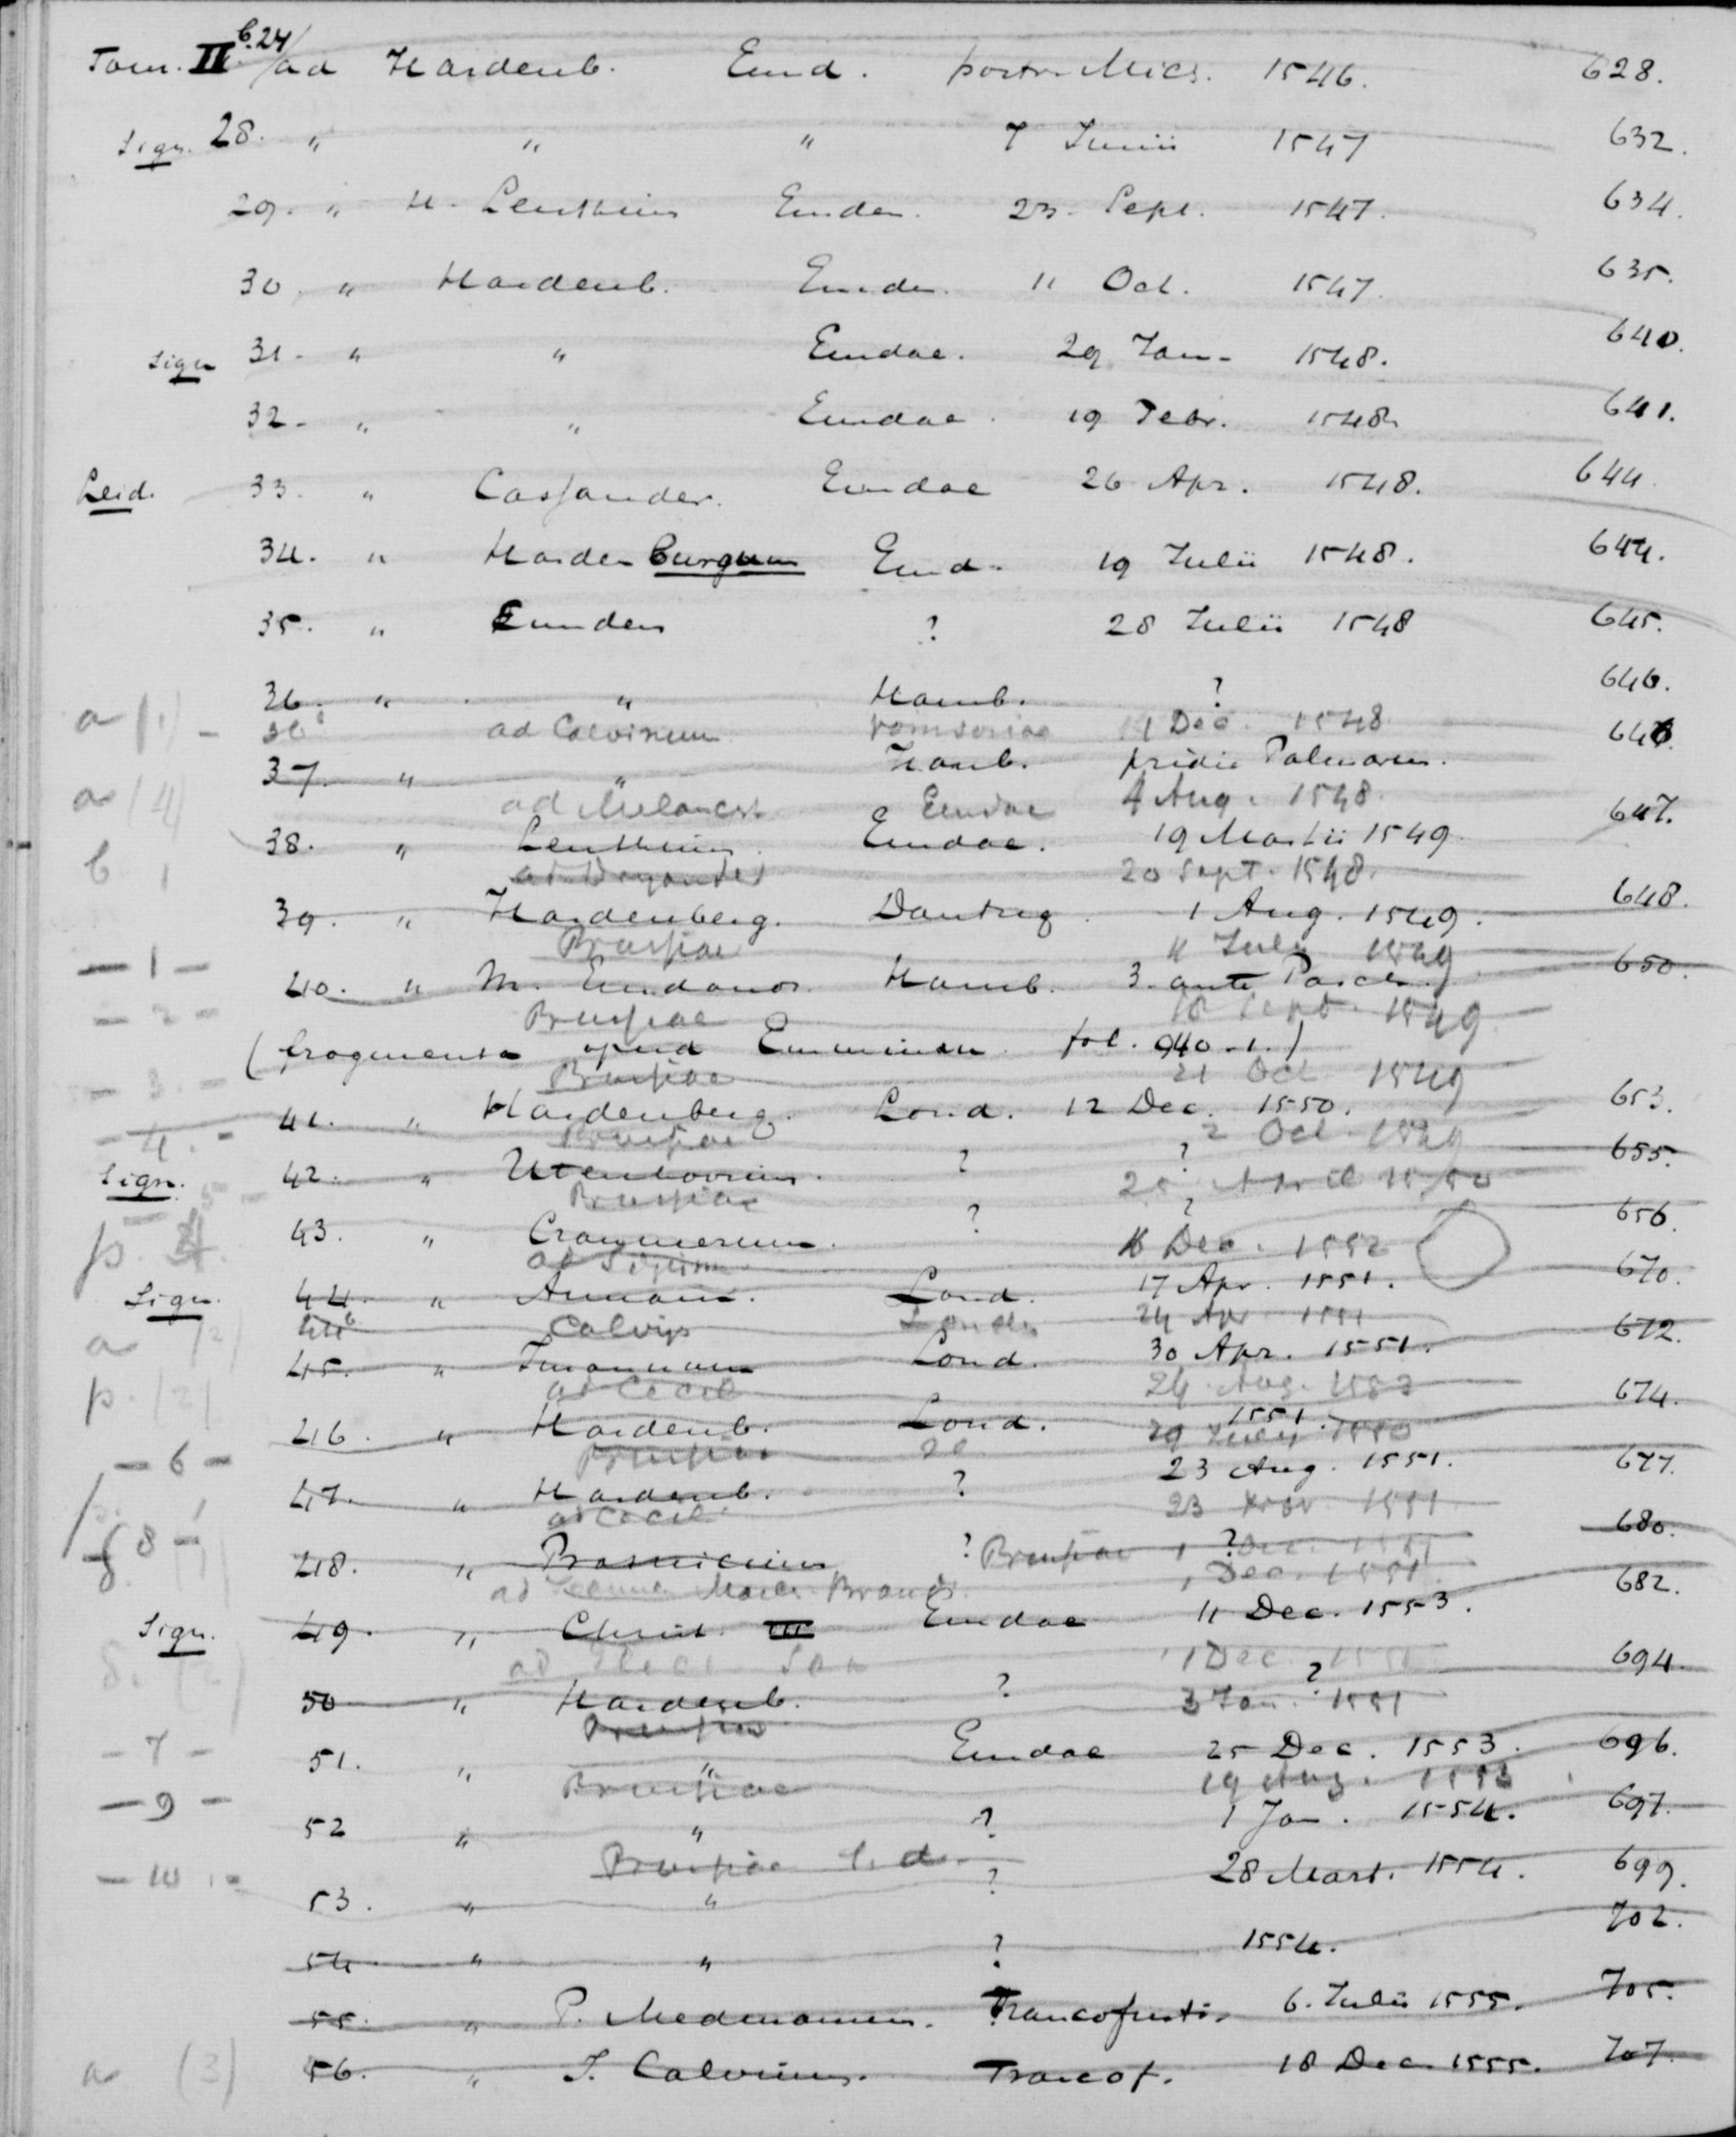 Tom. II 6.24/ ad Hardenb. Emd. postr. Mich. 1546. 628.
Sign. 28. " " " 7 Junii 1547 632.
29. " H. Lenthius Emden. 23. Sept. 1547. 634.
30. " Hardenb. Emden. 11 Oct. 1547. 635.
Sign 31. " " Emdae. 29 Jan. 1548. 640.
32. " " Emdae. 19 Febr. 1548. 641.
Leid. 33. " Cassander. Emdae 26 Apr. 1548. 644.
34. " Hardenburgum Emd. 19 Julii 1548. 644.
35. " Eundem ? 28 Julii 1548 645.
36. " " Hamb. ? 646.
a (1) - ad Calvinum 11 Dec. 1548
37. " " Hamb. pridie Palmarum. 646.
a (4) ad Melancht Emdae 4 Aug. 1548.
38. " Lenthius. Emdae. 19 Martii 1549. 647.
b 1 ad Dryander 20 Sept. 1548.
39. " Hardenberg. Dantzig. 1 Aug. 1549. 648.
- 1 - Brussiae 4 July 1549
40. " M. Emdanos. Hamb. 3. ante Pasch. 650.
- 2 - Brussiae 18 Sept. 1549
(fragmenta apud Emmium. fol. 940-1.)
- 3. - Brussiae 21 Oct 1549
41. " Hardenberg. Lond. 12 Dec. 1550. 653.
- 4. - Brussiae 2 Oct 1549
Sign. 42. " Utenhovium. ? ? 655.
- 5 - Brussiae 25 April 1550
43. " Cranmerum. ? ? 656.
p. 16 Dec. 1552
Sign. 44. " Lond. 17 Apr. 1551. 670.
a (2) 44b Calvijn Londen 24 Apr 1551
45. " Lond. 30 Apr. 1551. 672.
p. (2) ad Cecil 24 Aug. 1553
46. " Hardenb. Lond. 1551. 674.
- 6 - Brussiae 29 July 1550
47. " Hardenb. ? 23 Aug. 1551. 677.
ad Cecil 23 Nov. 1551
- 8 - Brussiae 1 Dec. 1551
48. " ? ? 680.
ad March. Brand. 1 Dec. 1551.
Sign. 49. " Christ. III Emdae 11 Dec. 1553. 682.
1 Dec. 1551
50 " Hardenb. ? ? 694.
- 7 - Brussiae 3 Jan. 1551
51. " " Emdae 25 Dec. 1553. 696.
- 9 - Brussiae 19 Aug. 1553
52 " " ? 1 Jan. 1554. 697.
- 10. - Brussiae s. d.
53. " " ? 28 Mart. 1554. 699.
54 " " ? 1554. 702.
55. " P. Medmannum. Francofurti. 6. Julii 1555. 705.
a (3) 56. " J. Calvinus. Francof. 18 Dec. 1555. 707.